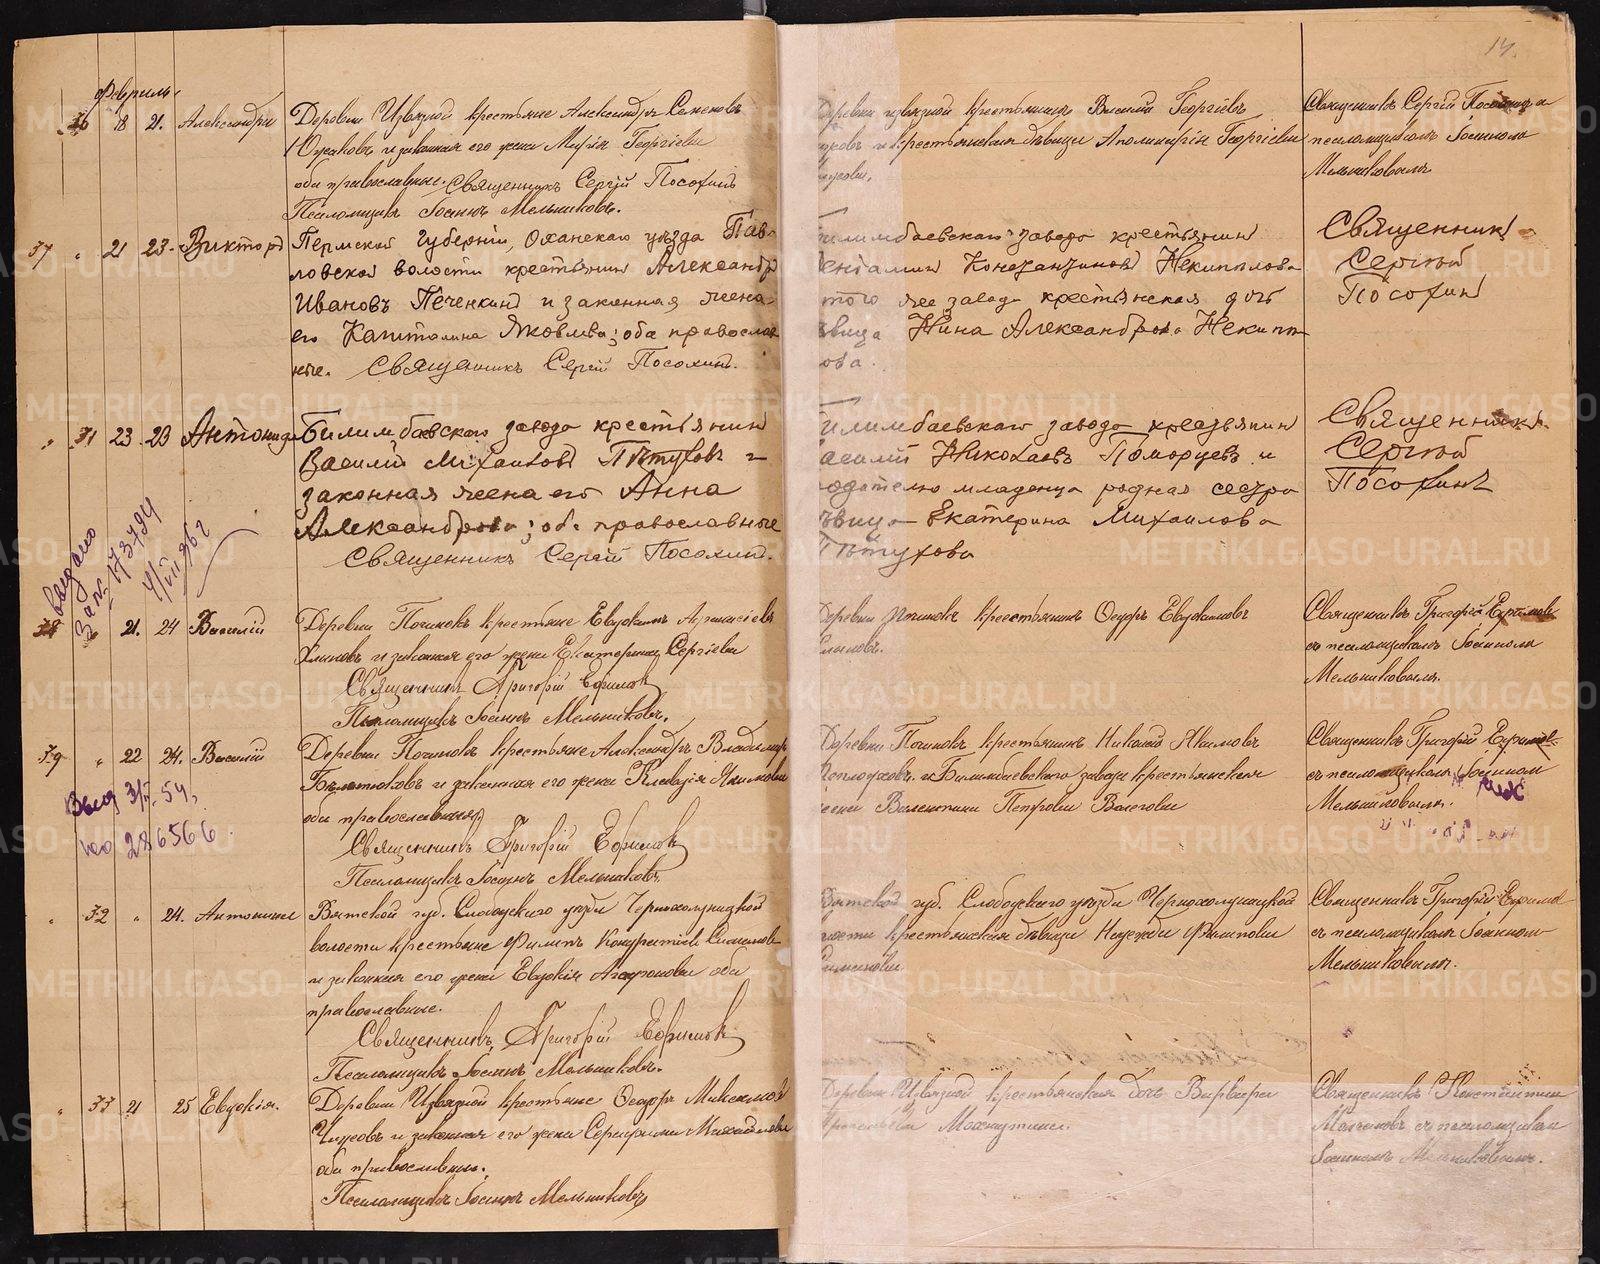 14.
Февраль
36 18 21. Александра
Деревни Извязной крестьяне Александръ Семеновъ
и законная его жена Марія Георгіева
оба православные. Священникъ Сергій Посохинъ
Псаломщикъ Іоаннъ Мельниковъ.
Деревни Извязной крестьянинъ Василій Георгіевъ
и крестьянская дѣвица Аполинарія Георгіева
Священникъ Сергій Посохинъ
псаломщикомъ Іоанномъ
Мельниковымъ
37 " 21 23. Викторъ
Пермской губерніи, Оханскаго уѣзда Пав-
ловской волости крестьянинъ Александръ
Ивановъ Печенкинъ и законная жена
его Капитолина Яковлева; оба православ
ные. Священникъ Сергій Посохинъ.
Билимбаевскаго завода крестьянинъ
Константиновъ Некипѣлова
того же завода крестьянская дочь
Нина Александрова Некипѣ
ова.
Священникъ
Сергій
Посохинъ
" 31 23 23 Антонида
Билимбаевскаго завода крестьянинъ
Василій Михаиловъ Пѣтуховъ и
законная жена его Анна
Александрова; оба православные
Священникъ Сергій Посохинъ.
Билимбаевскаго завода крестьянинъ
Василій Николаевъ Поморцевъ и
родителю младенца родная сестра
дѣвица Екатерина Михаилова
Пѣтухова
Священникъ
Сергій
Посохинъ
выдано
за № 173794
4/VII 96 г
38 " 21. 24 Василій
Деревни Починокъ крестьяне Евдокимъ
и законная его жена Екатерина Сергіева
Священникъ Григорій Ефимовъ
Псаломщикъ Іоаннъ Мельниковъ.
Деревни Починокъ крестьянинъ Ѳеодоръ Евдокимовъ
Священникъ Григорій Ефимовъ
съ псаломщикомъ Іоанномъ
Мельниковымъ.
39 " 22 24. Василій
Деревни Починокъ крестьяне Александръ Владимир
и законная его жена Клавдія Якимова
оба православныя
Священникъ Григорій Ефимовъ
Псаломщикъ Іоаннъ Мельниковъ.
Деревни Починокъ крестьянинъ Николай Якимовъ
и Билимбаевскаго завода крестьянская
Валентина Петрова
Священникъ Григорій Ефимов
съ псаломщикомъ Іоанном
Мельниковымъ.
Выд 3/V. 54,
286566.
" 32 " 24. Антонина
Вятской губ. Слободскаго уѣзда Чернохолуницкой
волости крестьяне Филиппъ
и законная его жена Евдокія оба
православные.
Священникъ Григорій Ефимовъ
Псаломщикъ Іоаннъ Мельниковъ.
Вятской губ. Слободскаго уѣзда Чернохолуницкой
крестьянская дѣвица Надежда Филиппова
Священникъ Григорій Ефимов
съ псаломщикомъ Іоанномъ
Мельниковымъ.
" 33 21 25 Евдокія.
Деревни Извязной крестьяне Ѳеодоръ
и законная его жена Серафима Михайлова
оба православныя.
Псаломщикъ Іоаннъ Мельниковъ
Деревни Извязной крестьянская дочь Варвара
Священникъ Константинъ
съ псаломщикомъ
Іоанномъ Мельниковымъ.
METRIKI.GASO-URAL.RU